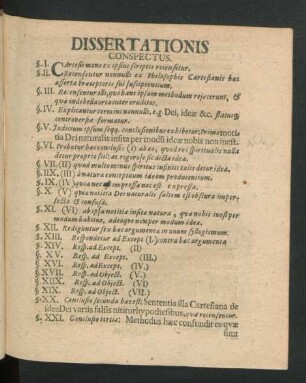 DISSERTATIONIS
CONSPECTUS.
§. I. Cartesii mens ex ipsius scriptis recensetur.
§. II. Recensentur nonnulli ex Philosophis Cartesianis hac
asserta præceptoris sui suscipientium.
§. III. Recensentur illi, qui hanc ipsam methodum rejecerunt, &
quæ inde inter eruditos.
§. IV. Explicantur termini nonnulli, e.g. Dei, ideæ &c. status
controversiæ formatur.
§. V. Judicium ipsum seqq. conclusionibus exhibetur; Prima: notitia
Dei naturalis insita per modum ideæ nobis non inest.
§. VI. Probatur hæc conclusio: (I) ab eo, quod rei spiritualis nulla
detur propria sic & rigorose sic dicta idea.
§. VII. (II) quod multo minus spiritus infiniti talis detur idea.
§. IIX. (III) à natura conceptuum idearum producentium.
§. IX. (IV) quia nec impressa nec est expressa.
§. X. (V) quia notitia Dei naturalis saltem est obscura imper-
fecta & confusa.
§. XI. (VI) ab ipsa notitiæ insitæ natura, quæ nobis inest per
modum habitus, adeoque non per modum ideæ.
§. XII. Rediguntur sex hæc argumenta in unum syllogismum.
§. XIII. Respondetur ad Except. (I.) contra hæc argumenta
§. XIV. Resp. ad Except. (II)
§. XV. Resp. ad Except. (III.)
§. XVI. Resp. ad Except. (IV.)
§. XVII. Resp. ad Object. (V.)
§. XIIX. Resp. ad Object. (VI)
§. XIX. Resp. ad Object. (VII.)
§. XX. Conclusio secunda hæc est: Sententia illa Cartesiana de
idea Dei variis falsis nititur hypothesibus, quæ recensentur.
§. XXI. Conclusio tertia: Methodus hæc confundit ea quæ
sunt